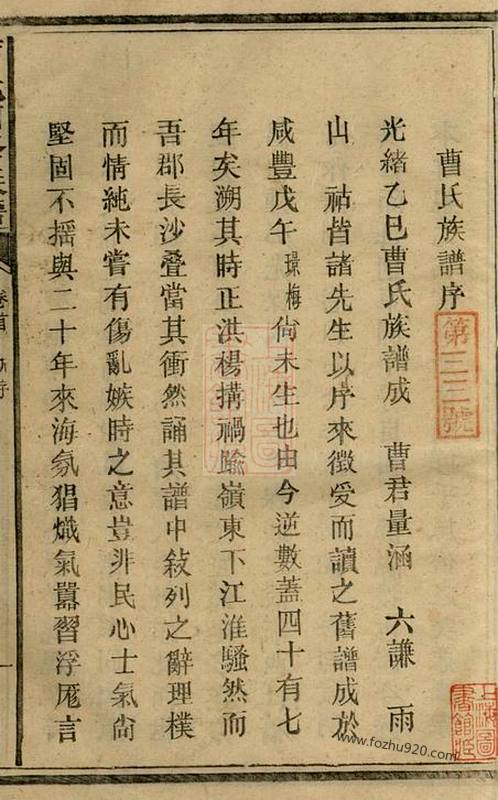 曹氏族譜序
第三三號
光緒乙巳曹氏族譜成　曹君量涵　六謙　雨
山　祜皆諸先生以序來徵受而讀之舊譜成於
咸豐戊午璟梅尙未生也由今逆數蓋四十有七
年矣溯其時正洪楊搆禍踰嶺東下江淮騷然而
吾郡長沙叠當其衝然誦其譜中敍列之辭理樸
而情純未嘗有傷亂嫉時之意豈非民心士氣尙
堅固不搖與二十年來海氛猖熾氣囂習浮厖言
卷首
上海圖書館藏
www.fozhu920.com